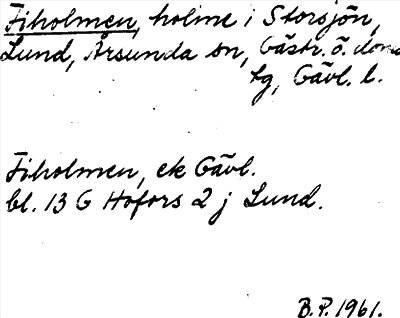 Fiholmen, holme i Storsjön,
Lund, Årsunda sn, Gästr. ö. doms
tg, Gävl. l.
Fiholmen, ek Gävl.
bl. 13 G Hofors 2 j Lund.
B.P. 1961.